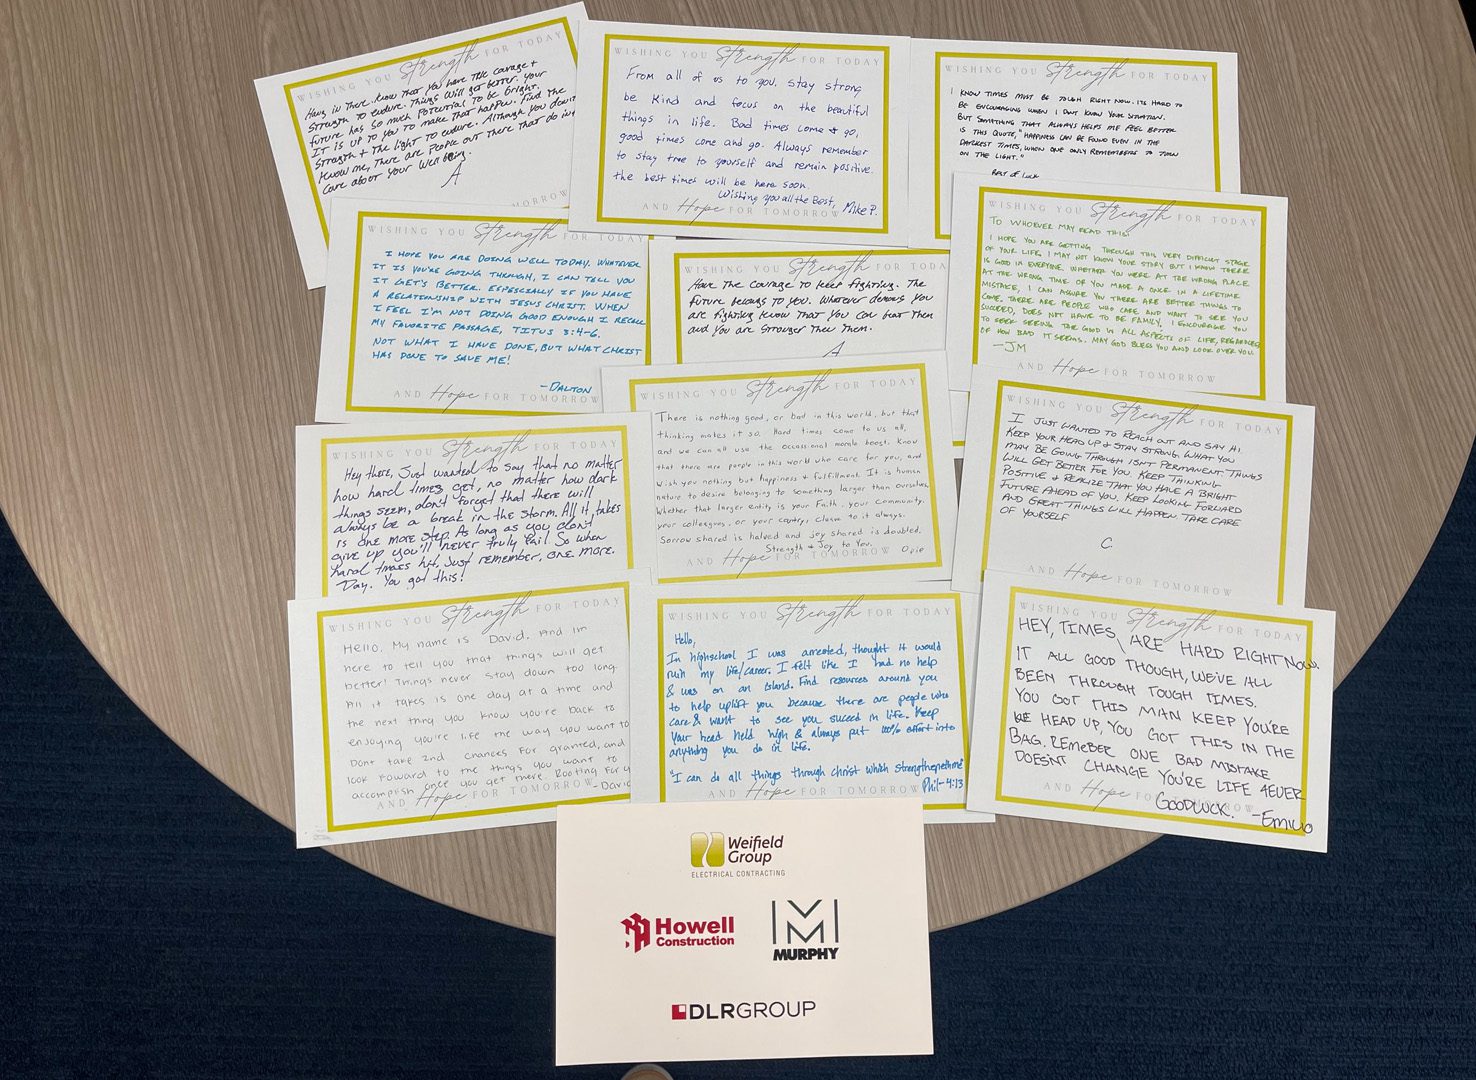 WISHING YOU Strength FOR TODAY
Hang in there. Know that you have the courage +
strength to endure. Things will get better. Your
future has so much potential to be bright.
It is up to you to make that happen. Find the
Strength + the light to endure. Although you don't
know me, there are people out there that do in
care about your well being.
A
FOR TOMORROW
WISHING YOU Strength FOR TODAY
From all of us to you. Stay strong
be kind and focus on the beautiful
things in life. Bad times come & go,
good times come and go. Always remember
to stay true to yourself and remain positive.
the best times will be here soon.
Wishing you all the Best, Mike P.
AND Hope FOR TOMORROW
WISHING YOU Strength FOR TODAY
I KNOW TIMES MUST BE TOUGH RIGHT NOW. ITS HARD TO
BE ENCOURAGING WHEN I DONT KNOW YOUR SITUATION.
BUT SOMETHING THAT ALWAYS HELPS ME FEEL BETTER
IS THIS QUOTE, "HAPPINESS CAN BE FOUND EVEN IN THE
DARKEST TIMES, WHEN ONE ONLY REMEMBERS TO TURN
ON THE LIGHT."
BEST OF LUCK
WISHING YOU Strength FOR TODAY
I HOPE YOU ARE DOING WELL TODAY. WHATEVER
IT IS YOU'RE GOING THROUGH, I CAN TELL YOU
IT GET'S BETTER. ESPECIALLY IF YOU HAVE
A RELATIONSHIP WITH JESUS CHRIST. WHEN
I FEEL I'M NOT DOING GOOD ENOUGH I RECALL
MY FAVORITE PASSAGE, TITUS 3:4-6.
NOT WHAT I HAVE DONE, BUT WHAT CHRIST
HAS DONE TO SAVE ME!
-DALTON
AND Hope FOR TOMORROW
WISHING YOU Strength FOR TODAY
Have the courage to keep fighting. The
future belongs to you. Whatever demons you
are fighting know that you can beat them
and you are stronger then them.
A
WISHING YOU Strength FOR TODAY
TO WHOEVER MAY READ THIS:
I HOPE YOU ARE GETTING THROUGH THIS VERY DIFFICULT STAGE
OF YOUR LIFE. I MAY NOT KNOW YOUR STORY BUT I KNOW THERE
IS GOOD IN EVERYONE. WHETHER YOU WERE AT THE WRONG PLACE
AT THE WRONG TIME OR YOU MADE A ONCE IN A LIFETIME
MISTAKE, I CAN ASSURE YOU THERE ARE BETTER THINGS TO
COME. THERE ARE PEOPLE WHO CARE AND WANT TO SEE YOU
SUCCEED, DOES NOT HAVE TO BE FAMILY. I ENCOURAGE YOU
TO KEEP SEEING THE GOOD IN ALL ASPECTS OF LIFE, REGARDLESS
OF HOW BAD IT SEEMS. MAY GOD BLESS YOU AND LOOK OVER YOU.
-JM
AND Hope FOR TOMORROW
WISHING YOU Strength FOR TODAY
Hey there, Just wanted to say that no matter
how hard times get, no matter how dark
things seem, don't forget that there will
always be a break in the storm. All it takes
is one more step. As long as you don't
give up you'll never truly fail. So when
hard times hit, just remember, one more
Day. You got this!
WISHING YOU Strength FOR TODAY
There is nothing good, or bad in this world, but that
thinking makes it so. Hard times come to us all,
and we can all use the occassional morale boost. Know
that there are people in this world who care for you, and
wish you nothing but happiness & fulfillment. It is human
nature to desire belonging to something larger than ourselves.
Whether that larger entity is your Faith, your Community,
your colleagues, or your country, cleave to it always.
Sorrow shared is halved and joy shared is doubled.
Strength & Joy to You.
Opie
AND Hope FOR TOMORROW
WISHING YOU Strength FOR TODAY
I JUST WANTED TO REACH OUT AND SAY HI
KEEP YOUR HEAD UP & STAY STRONG. WHAT YOU
MAY BE GOING THROUGH ISN'T PERMANENT THINGS
WILL GET BETTER FOR YOU. KEEP THINKING
POSITIVE & REALIZE THAT YOU HAVE A BRIGHT
FUTURE AHEAD OF YOU. KEEP LOOKING FORWARD
AND GREAT THINGS WILL HAPPEN. TAKE CARE
OF YOURSELF
C.
AND Hope FOR TOMORROW
WISHING YOU Strength FOR TODAY
Hello. My name is David. And Im
here to tell you that things will get
better! Things never stay down too long.
All it takes is one day at a time and
the next thing you know you're back to
enjoying you're life the way you want to
Dont take 2nd chances for granted, and
look foward to the things you want to
accomplish once you get there. Rooting for y
-David
AND Hope FOR TOMORROW
WISHING YOU Strength FOR TODAY
Hello,
In highschool I was arrested, thought it would
ruin my life/career. I felt like I had no help
& was on an island. Find resources around you
to help uplift you because there are people who
care & want to see you suceed in life. Keep
your head held high & always put 100% effort into
anything you do in life.
"I can do all things through christ which strengtheneth me"
Phil- 4:13
AND Hope FOR TOMORROW
WISHING YOU Strength FOR TODAY
HEY, TIMES ARE HARD RIGHT NOW.
IT ALL GOOD THOUGH, WE'VE ALL
BEEN THROUGH TOUGH TIMES.
YOU GOT THIS MAN KEEP YOU'RE
HEAD UP, YOU GOT THIS IN THE
BAG. REMEBER ONE BAD MISTAKE
DOESNT CHANGE YOU'RE LIFE 4EVER
GOODLUCK. -EMILIO
AND Hope FOR TOMORROW
Weifield
Group
ELECTRICAL CONTRACTING
Howell
Construction
MURPHY
DLRGROUP